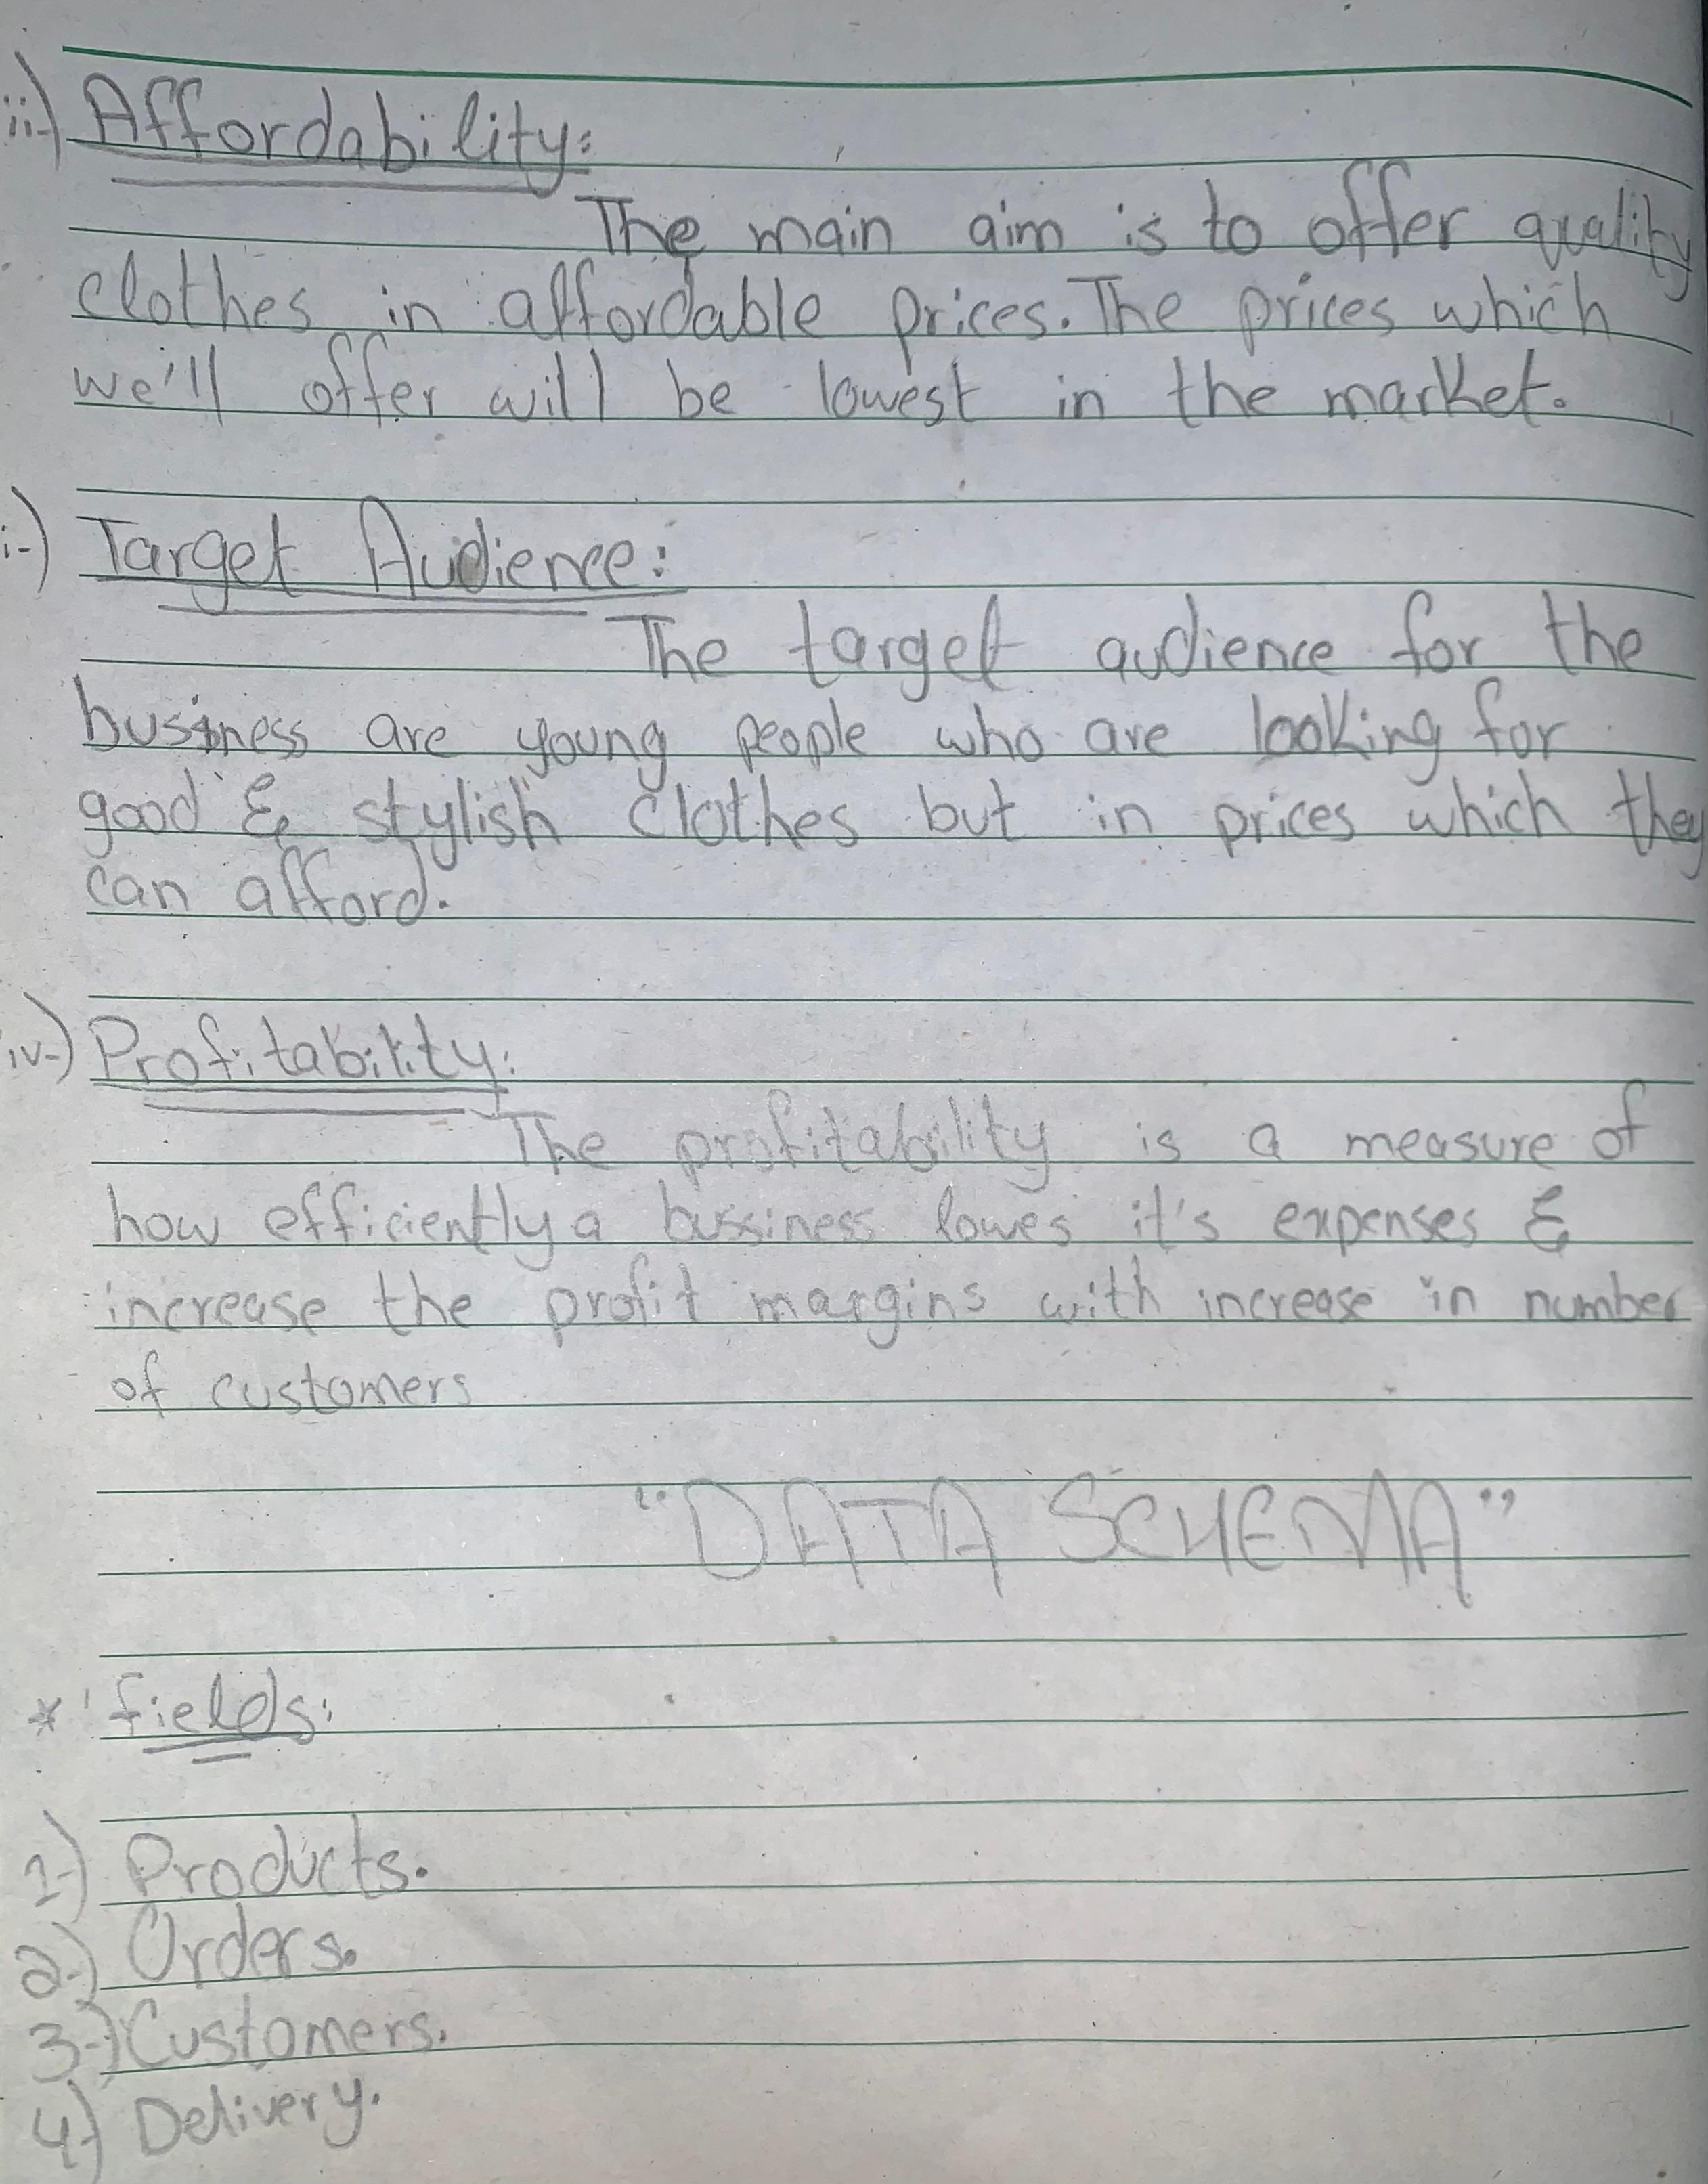 ii-) Affordability:
The main aim is to offer quality
clothes in affordable prices. The prices which
we'll offer will be lowest in the market.
i-) Target Audience:
The target audience for the
business are young people who are looking for
good & stylish clothes but in prices which they
can afford.
iv-) Profitability:
The profitability is a measure of
how efficiently a bussiness lowes it's expenses &
increase the profit margins with increase in number
of customers
"DATA SCHEMA"
* fields:
1-) Products.
2-) Orders.
3-) Customers.
4-) Delivery.